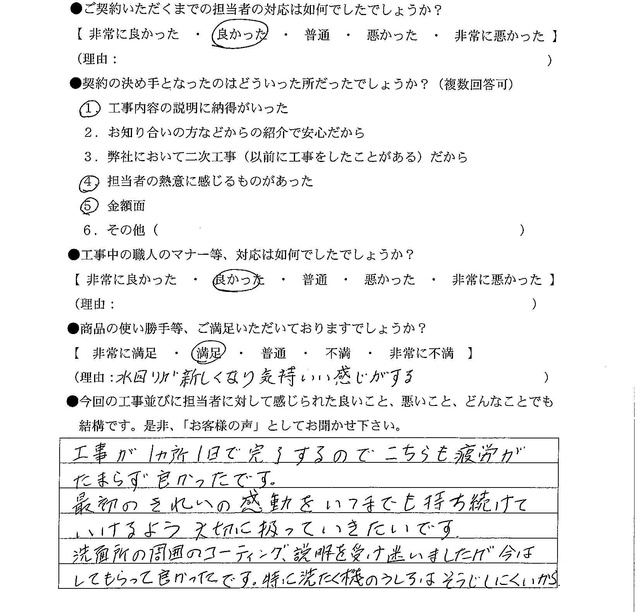 ●ご契約いただくまでの担当者の対応は如何でしたでしょうか？
【 非常に良かった ・ 良かった ・ 普通 ・ 悪かった ・ 非常に悪かった 】
（理由： ）
●契約の決め手となったのはどういった所だったでしょうか？（複数回答可）
1．工事内容の説明に納得がいった
2．お知り合いの方などからの紹介で安心だから
3．弊社において二次工事（以前に工事をしたことがある）だから
4．担当者の熱意に感じるものがあった
5．金額面
6．その他（ ）
●工事中の職人のマナー等、対応は如何でしたでしょうか？
【 非常に良かった ・ 良かった ・ 普通 ・ 悪かった ・ 非常に悪かった 】
（理由： ）
●商品の使い勝手等、ご満足いただいておりますでしょうか？
【 非常に満足 ・ 満足 ・ 普通 ・ 不満 ・ 非常に不満 】
（理由：水回りが新しくなり気持いい感じがする ）
●今回の工事並びに担当者に対して感じられた良いこと、悪いこと、どんなことでも
結構です。是非、「お客様の声」としてお聞かせ下さい。
工事が1カ所1日で完了するのでこちらも疲労が
たまらず良かったです。
最初のきれいの感動をいつまでも持ち続けて
いけるよう大切に扱っていきたいです
洗面所の周囲のコーティング、説明を受け迷いましたが今は
してもらって良かったです。特に洗たく機のうしろはそうじしにくいから